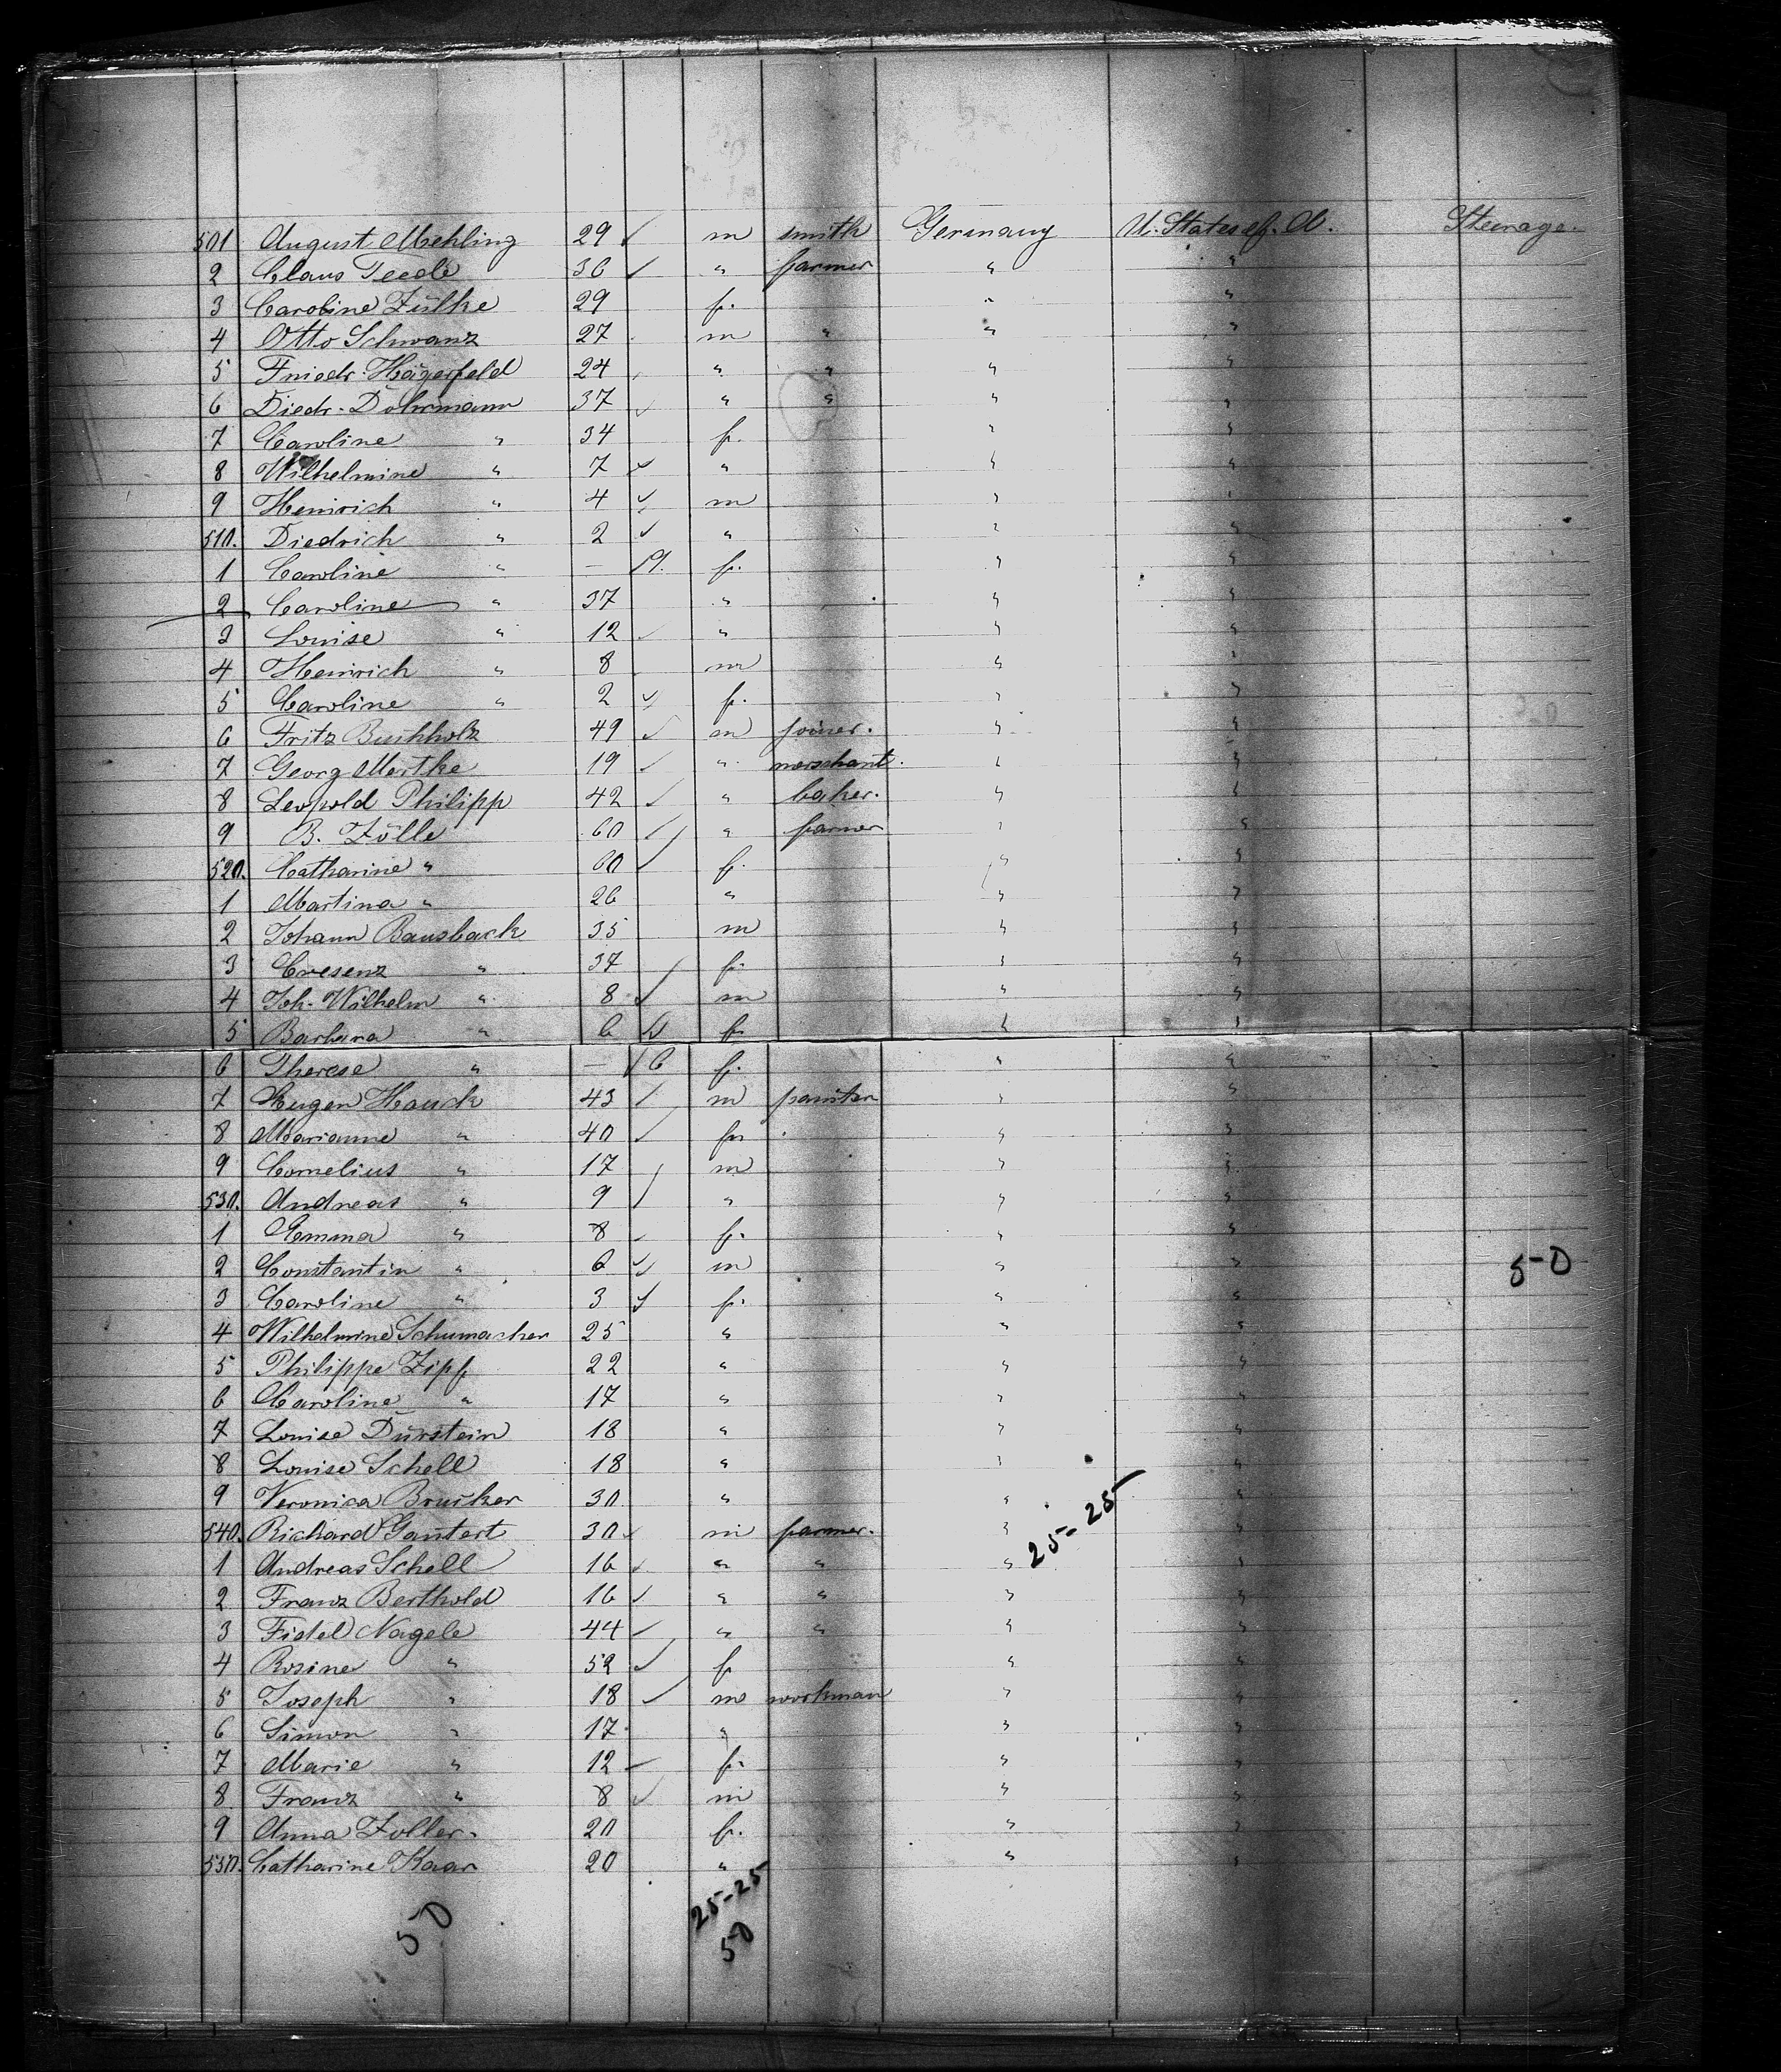 501 August Mehling 29 m smith Germany U. States of. A. Steerage.
2 Claus Teede 36 " farmer " "
3 Caroline Zülke 29 f. " "
4 Otto Schwanz 27 m " " "
5 Friedr. Hägerfeld 24 " " " "
6 Diedr. Dohrmann 37 " " " "
7 Caroline " 34 f. " "
8 Wilhelmine " 7 " " "
9 Heinrich " 4 m " "
510. Diedrich " 2 " " "
1 Caroline " — f. " "
2 Caroline " 37 " " "
3 Louise " 12 " " "
4 Heinrich " 8 m " "
5 Caroline " 2 f. " "
6 Fritz Buchholz 49 m joiner. " "
7 Georg Mertke 19 " merschant. " "
8 Leopold Philipp 42 " baker. " "
9 B. Zölle 60 " farmer " "
520. Catharine " 60 f. " "
1 Martina " 26 " " "
2 Johann Bausback 35 m " "
3 Cresenz " 37 f. " "
4 Joh. Wilhelm " 8 m " "
5 Barbara " 6 f. " "
6 Therese " — 6 f. " "
7 Eugen Hauck 43 m painter " "
8 Marianne " 40 f. " "
9 Cornelius " 17 m " "
530. Andreas " 9 " " "
1 Emma " 8 f. " "
2 Constantin " 6 m " "
50
3 Caroline " 3 f. " "
4 Wilhelmine Schumacher 25 " " "
5 Philippe Zipf 22 " " "
6 Caroline " 17 " " "
7 Louise Dürstein 18 " " "
8 Louise Schell 18 " " "
9 Veronica Brucker 30 " " "
540. Richard Gantert 30 m farmer. " "
25-25
1 Andreas Schell 16 " " " "
2 Franz Berthold 16 " " " "
3 Fidel Nagele 44 " " " "
4 Rosine " 52 f " "
5 Joseph " 18 m workman " "
6 Simon " 17 " " "
7 Marie " 12 f. " "
8 Franz " 8 m " "
9 Anna Zoller. 20 f. " "
550. Catharine Kaar 20 " " "
50 25-25
50